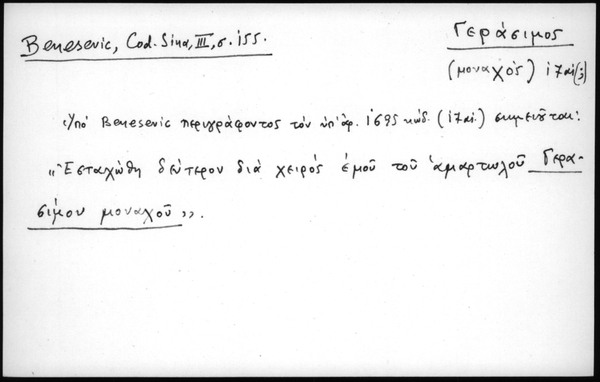 Benesevic, Cod. Sina, III, σ. 155.
Γεράσιμος
(μοναχός) 17 αἰ(;)
Ὑπό Benesevic περιγράφοντος τόν ὑπ' ἀρ. 1695 κώδ. (17 αἰ.) σημειοῦται:
„Ἐσταχώθη δεύτερον διά χειρός ἐμοῦ τοῦ ἁμαρτωλοῦ Γερα-
σίμου μοναχοῦ».